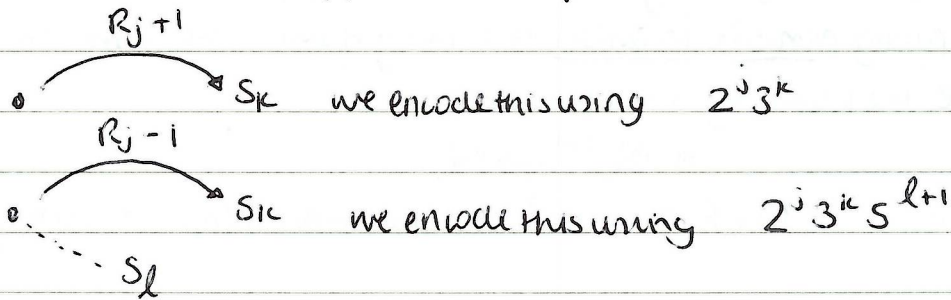 Rj+1
Sk we encode this using 2^j 3^k
Rj-1
Sk we encode this using 2^j 3^k 5^{l+1}
Sl